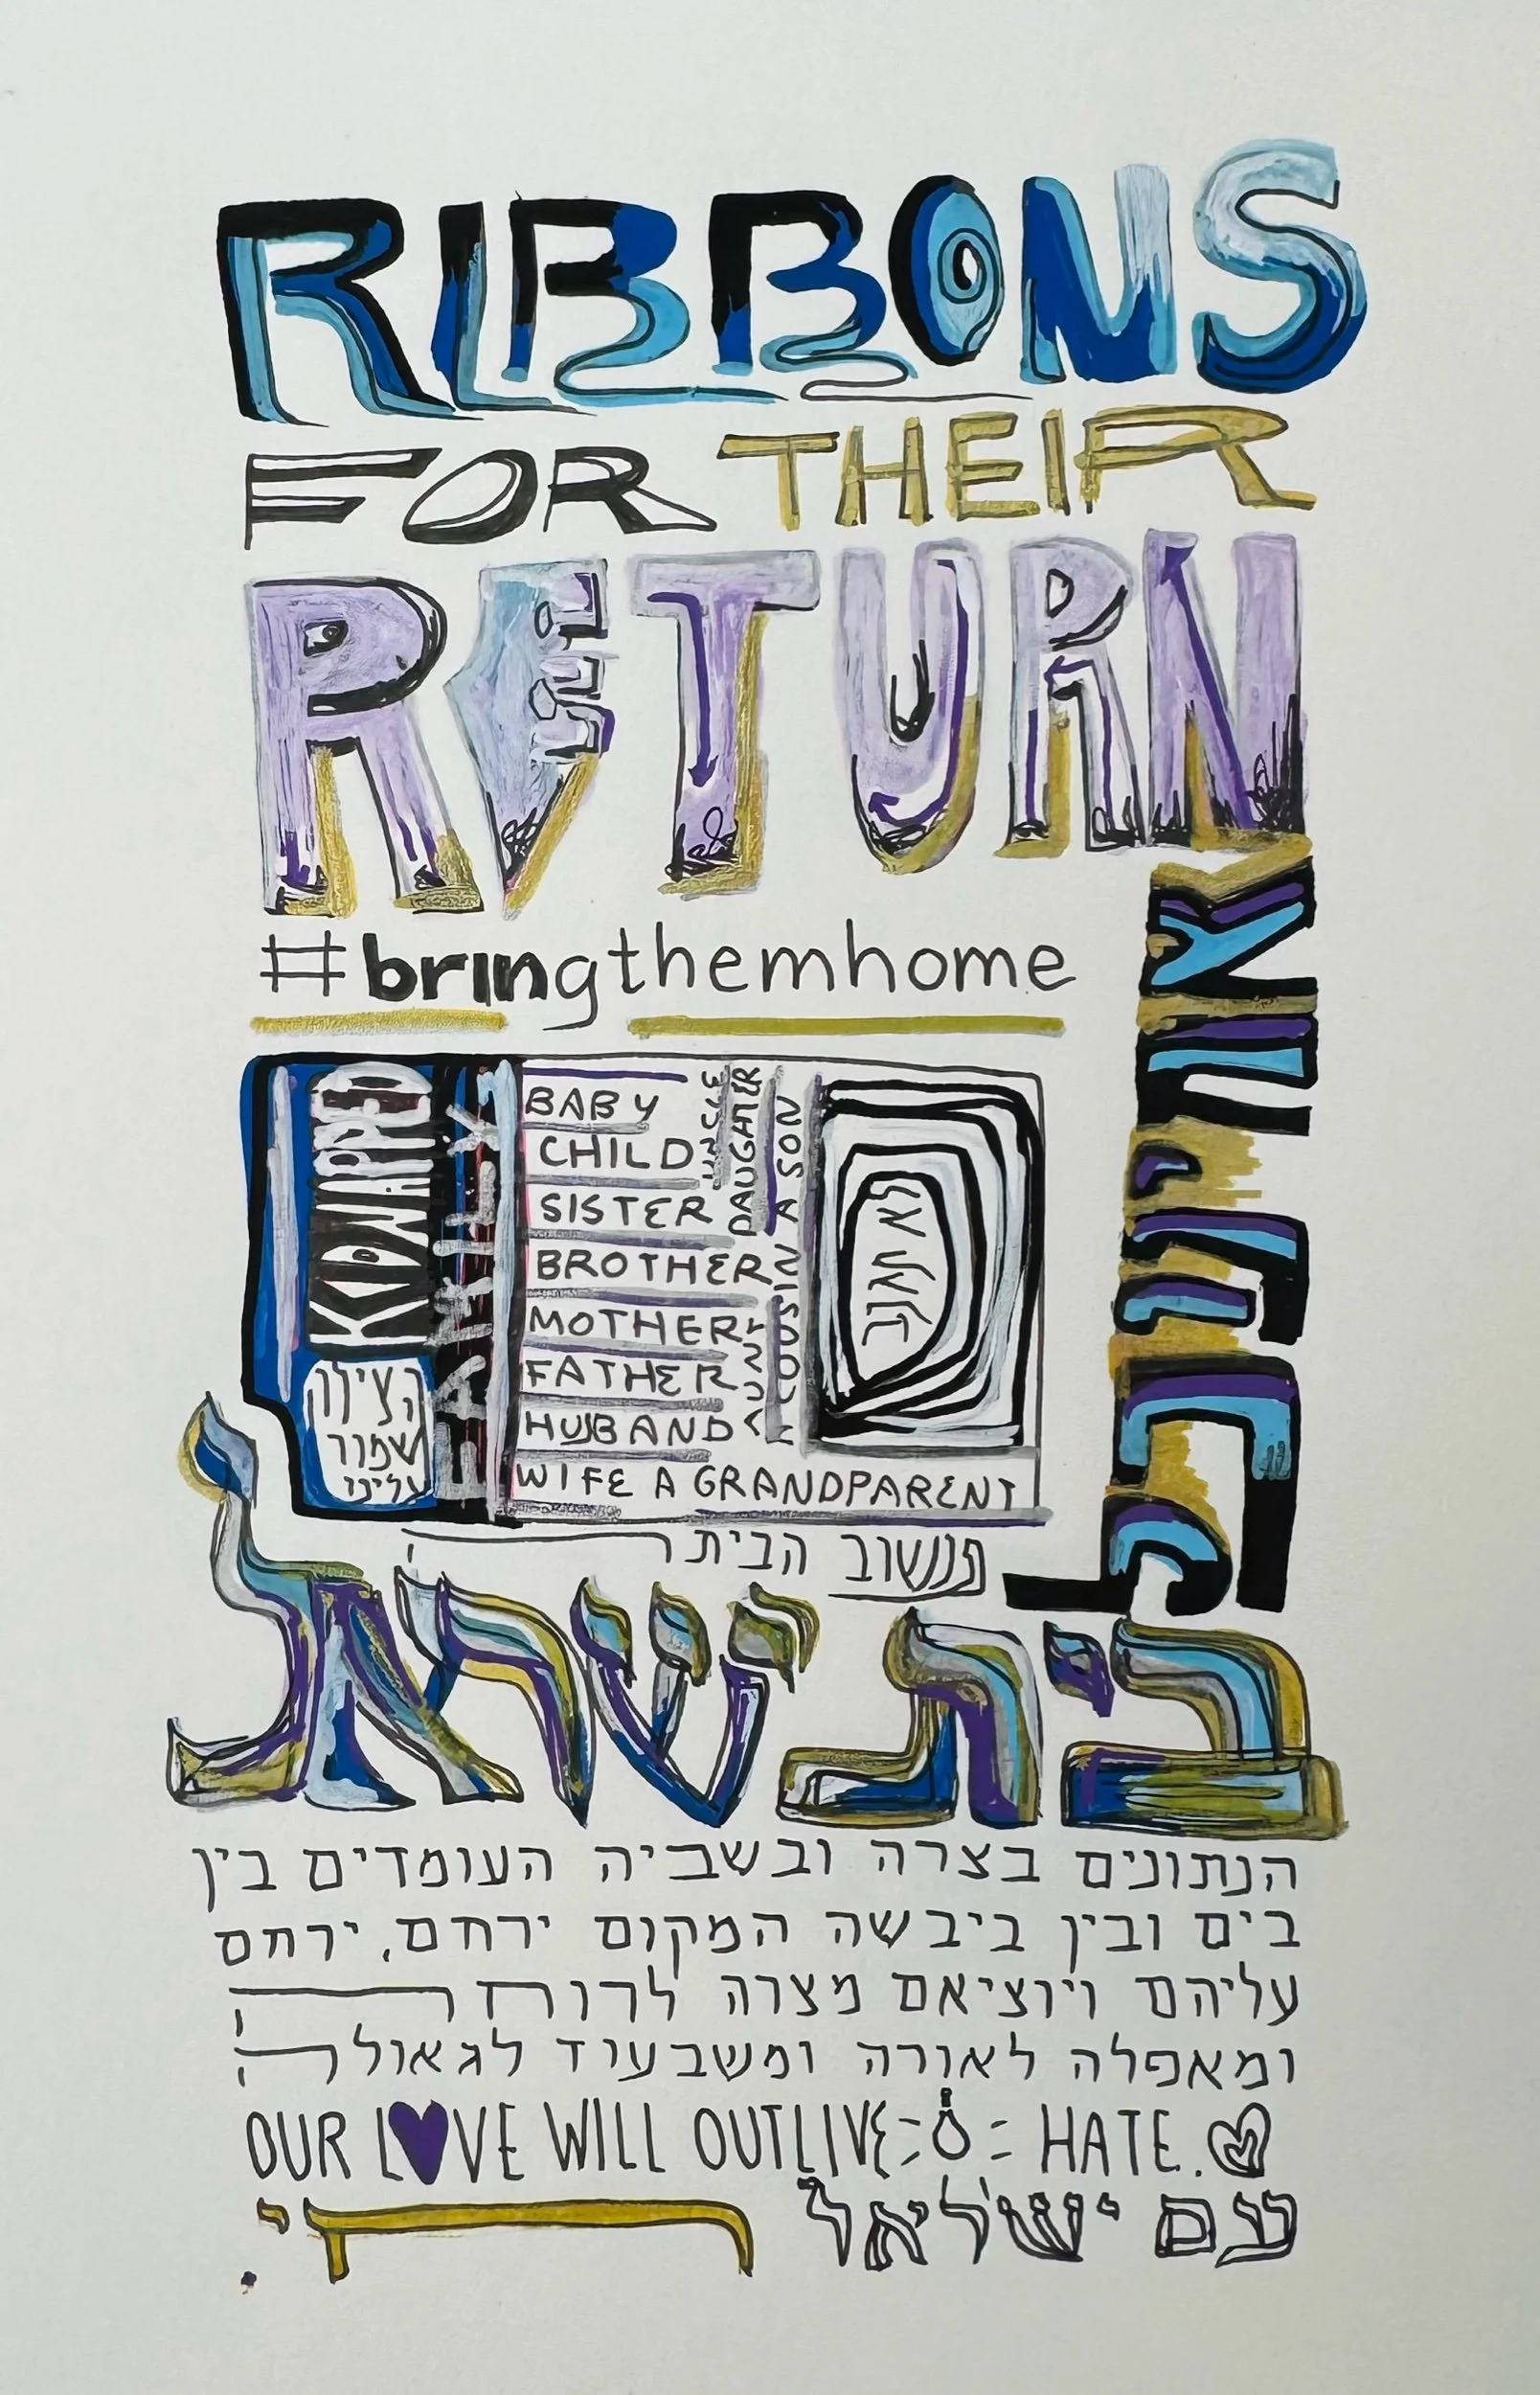 RIBBONS
FOR THEIR
RETURN
#bringthemhome
KIDNAPPED
הצילו
שמור
עלינו
FAMILY
BABY
CHILD
SISTER
BROTHER
MOTHER
FATHER
HUSBAND
WIFE A GRANDPARENT
UNCLE
DAUGHTER
AUNT
A COUSIN A SON
לא תגנב
שנשוב הביתה
אחינו כל
בית ישראל
הנתונים בצרה ובשביה העומדים בין
בים ובין ביבשה המקום ירחם. ירחם
עליהם ויוציאם מצרה לרוחה
ומאפלה לאורה ומשבעוד לגאולה
OUR LOVE WILL OUTLIVE HATE.
עם ישראל חי